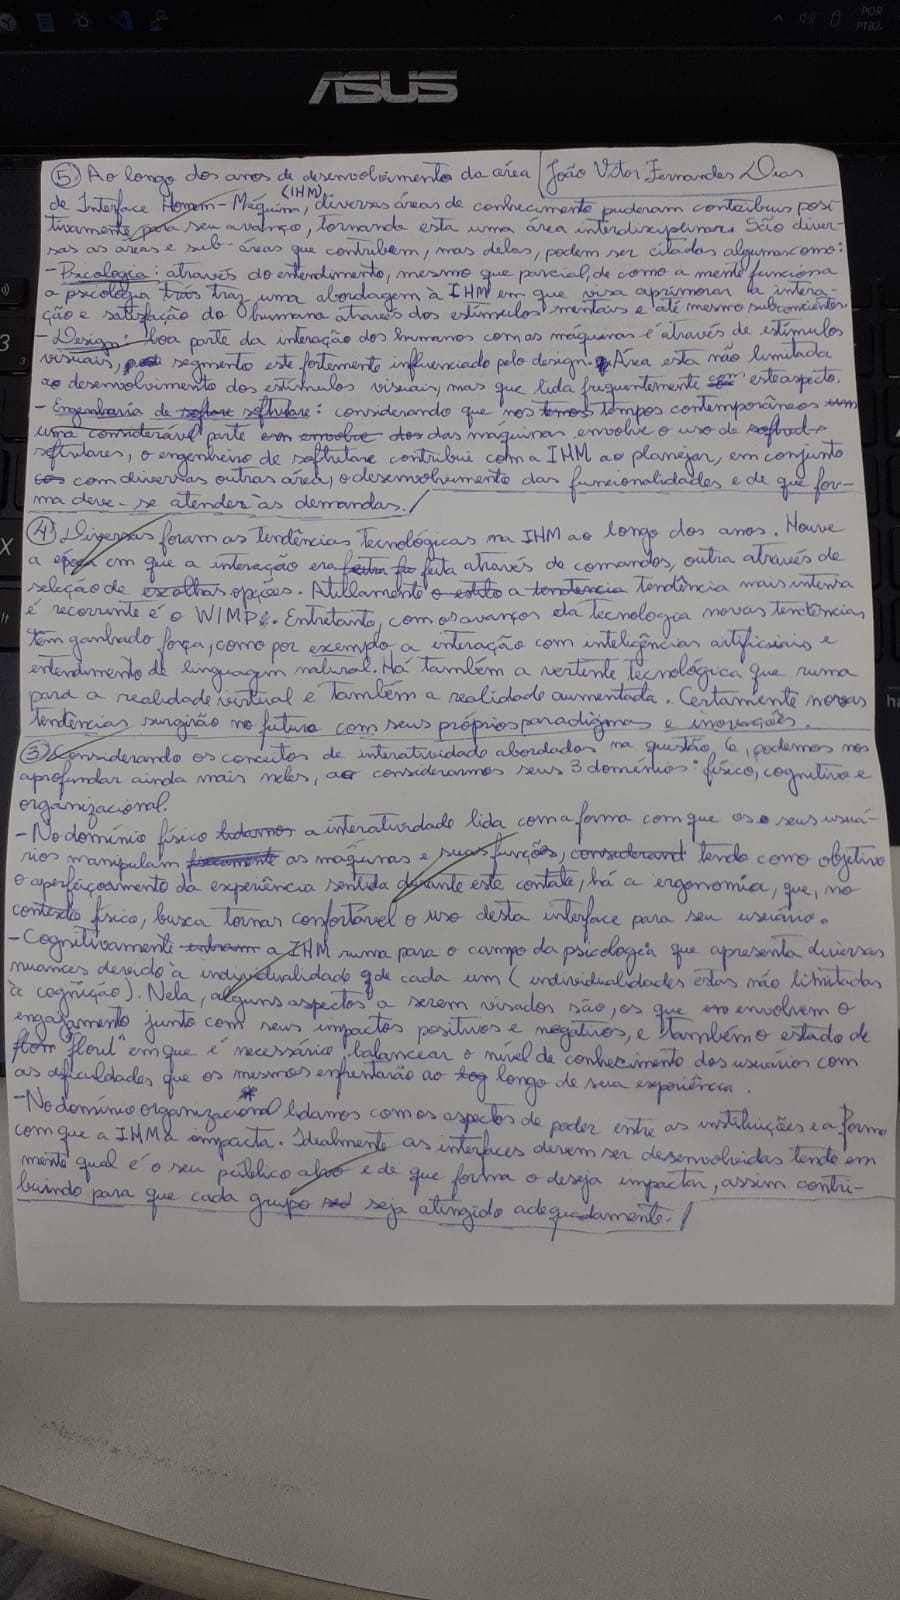 POR
PTB2
ASUS
João Vitor Fernandes Dias
5) Ao longo dos anos de desenvolvimento da área
de Interface Homem-Máquina (IHM), diversas áreas de conhecimento puderam contribuir posi
tivamente para seu avanço, tornando esta uma área interdisciplinar. São diver-
sas as áreas e sub-áreas que contribem, mas delas, podem ser citadas algumas como:
- Psicologia: através do entendimento, mesmo que parcial, de como a mente funciona
a psicologia trás traz uma abordagem à IHM em que visa aprimorar a intera-
ção e satisfação do humano através dos estímulos mentais e até mesmo subconcientes.
- Design: boa parte da interação dos humanos com as máquinas é através de estímulos
visuais, segmento este fortemente influenciado pelo design. Área esta não limitada
ao desenvolvimento dos estímulos visuais, mas que lida frequentemente com este aspecto.
- Engenharia de softare software: considerando que nos temos tempos contemporâneos um
uma considerável parte em envolve dos das máquinas envolve o uso de
softwares, o engenheiro de software contribui com a IHM ao planejar, em conjunto
com diversas outras área, o desenvolvimento das funcionalidades e de que for-
ma deve-se atender às demandas.
4) Diversas foram as tendências tecnológicas na IHM ao longo dos anos. Houve
a época em que a interação era feita através de comandos, outra através de
seleção de escolhas opções. Atualmente o estilo a tendencia tendência mais intensa
e recorrente é o WIMP. Entretanto, com os avanços da tecnologia novas tendências
têm ganhado força, como por exemplo a interação com inteligências artificiais e
entendimento de linguagem natural. Há também a vertente tecnológica que ruma
para a realidade virtual e também a realidade aumentada. Certamente novas
tendências surgirão no futuro com seus próprios paradigmas e inovações.
3) Considerando os conceitos de interatividade abordados na questão 6, podemos nos
aprofundar ainda mais neles, ao considerarmos seus 3 domínios: físico, cognitivo e
organizacional.
- No domínio físico lidamos a interatividade lida com a forma com que os seus usuá-
rios manipulam fisicamente as máquinas e suas funções, considerand tendo como objetivo
o aperfeiçoamento da experiência sentida durante este contato, há a ergonomia, que, no
contexto físico, busca tornar confortável o uso desta interface para seu usuário.
- Cognitivamente entram a IHM ruma para o campo da psicologia que apresenta diversas
nuances devido à individualidade de cada um (individualidades estas não limitadas
à cognição). Nela, alguns aspectos a serem visados são, os que envolvem o
engajamento junto com seus impactos positivos e negativos, e também o estado de
flow "flow" em que é necessário balancear o nível de conhecimento dos usuários com
as dificuldades que os mesmos enfrentarão ao log longo de sua experiência.
- No domínio organizacional lidamos com os aspectos de poder entre as instituições e a forma
com que a IHM a impacta. Idealmente as interfaces devem ser desenvolvidas tendo em
mente qual é o seu público alvo e de que forma o deseja impactar, assim contri-
buindo para que cada grupo sed seja atingido adequadamente.